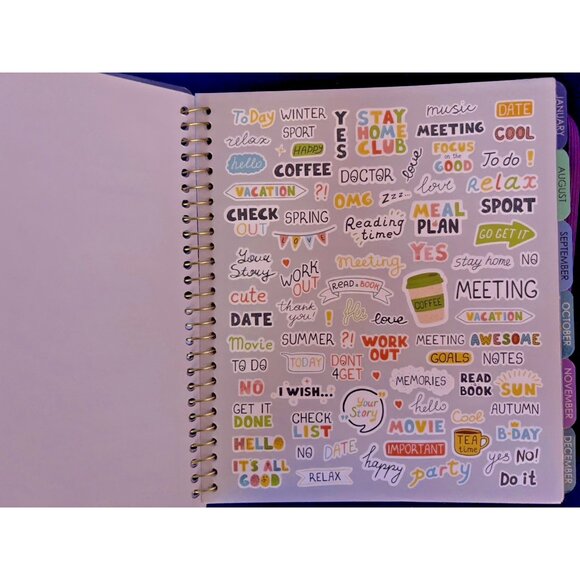 ToDay
WINTER
YES
STAY
HOME
CLUB
music
DATE
relax
SPORT
MEETING
COOL
HAPPY
FOCUS
on the
GOOD
hello
COFFEE
DOCTOR
love
To do !
VACATION
?!
OMG
zzz...
love
Relax
CHECK
OUT
SPRING
Reading
time
MEAL
PLAN
SPORT
LOVE
YES
GO GET IT
Your
Story
WORK
OUT
meeting
stay home
NO
cute
READ A BOOK
COFFEE
MEETING
DATE
thank
you!
!
love
VACATION
Movie
SUMMER
?!
WORK
OUT
MEETING
AWESOME
TO DO
TODAY
DONT
4GET
GOALS
NOTES
NO
I WISH...
MEMORIES
READ
BOOK
SUN
GET IT
DONE
CHECK
LIST
Your
Story
hello
Cool
AUTUMN
HELLO
MOVIE
TEA
time
B-DAY
IT'S ALL
GOOD
NO
DATE
happy
IMPORTANT
yes
NO!
RELAX
party
Do it
JANUARY
AUGUST
SEPTEMBER
OCTOBER
NOVEMBER
DECEMBER